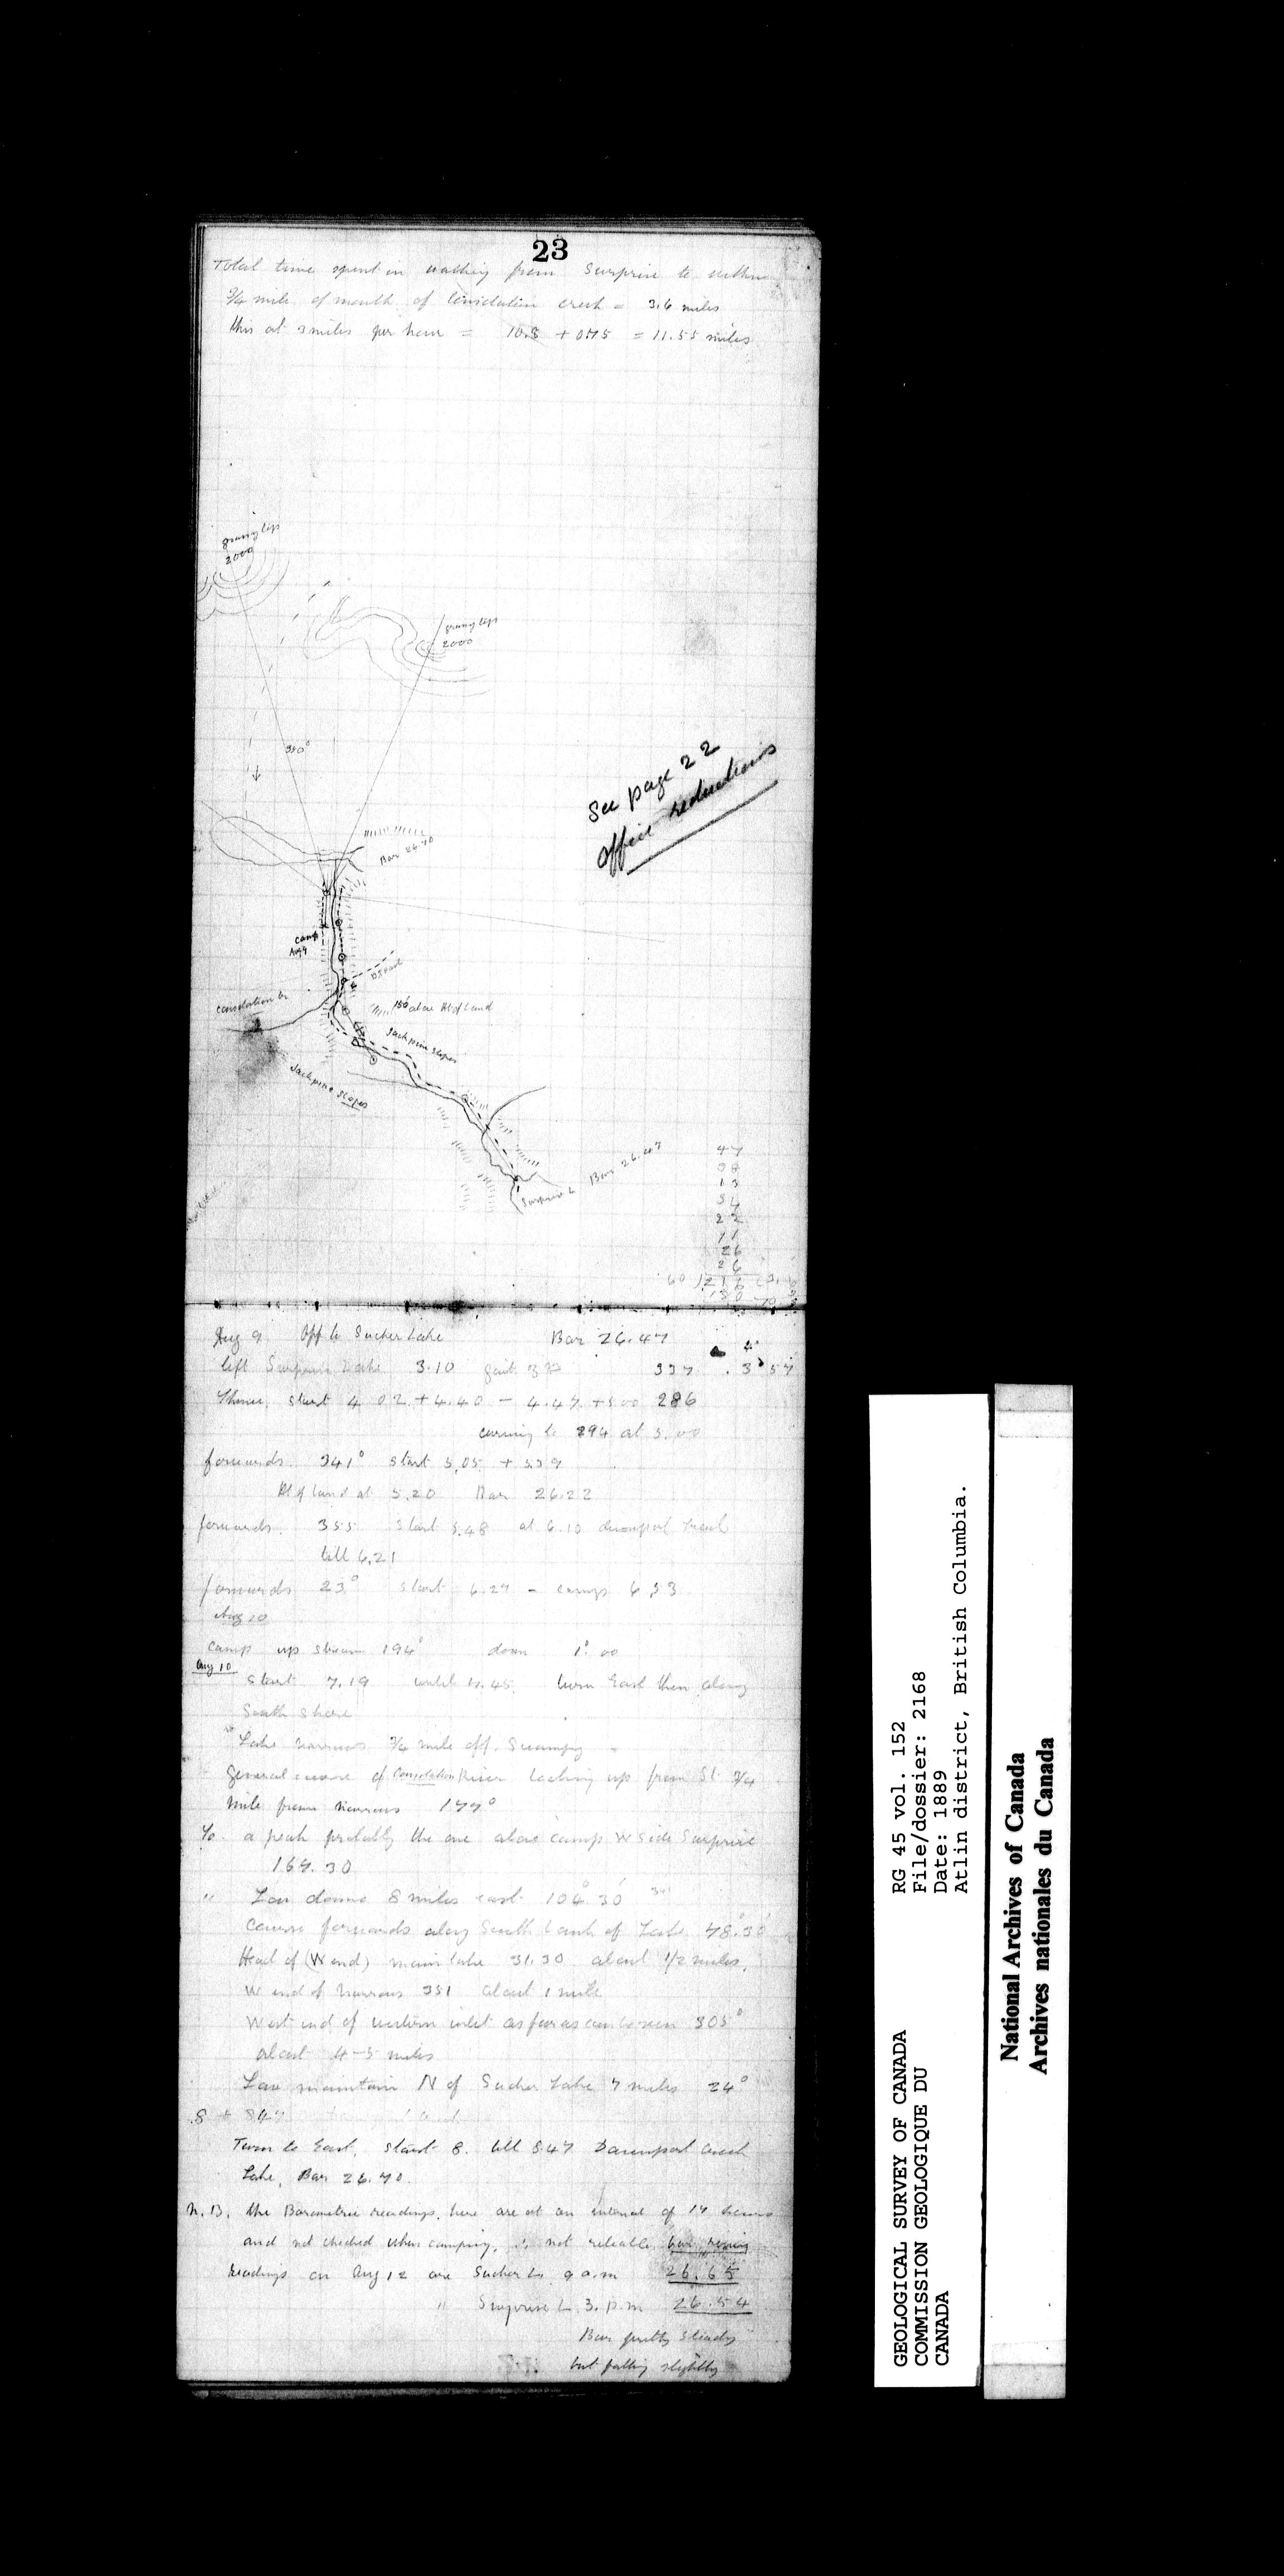 23
Total time spent in walking from Surprise to within
3/4 mile of mouth of Consolation creek = 3.6 miles
this at 3 miles per hour = 10.8 + 0.75 = 11.55 miles
grassy tops
2000
grassy tops
2000
350°
See page 22
Office reductions
Bar 26.70
Camp
Aug 9
Consolation Cr
150' above Ht of Land
Jack pine slopes
Jack pine slopes
Bar 26.47
Surprise L
47
38
13
34
22
11
26
26
60 ) 216 ( 3.
180
Aug 9 Off to Sucker Lake Bar 26.47
left Surprise Lake 3.10 337 3 57
Thence, start 4 02 + 4.40 - 4.47 + 5 00 286
curving to 294 at 5.00
forwards 341° start 5.05 + 5.39
Ht of land at 5.20 Bar 26.22
forwards. 355 start 5.48 at 6.10 trail
till 6.21
forwards 23° start 6.27 - camp 6.53
Aug 10
camp up stream 194° down 1°.00
Aug 10
start 7.19 until 7.45. turn East then along
South shore
Lake narrows 3/4 mile off. Swampy
General course of Consolation River looking up from St 3/4
mile from narrows 177°
To a peak probably the one above camp W side Surprise
167.30
" Low dome 8 miles east 104° 30'
Course forwards along South bank of Lake 78°.30'
Head of (W end) main lake 31.30 about 1/2 miles.
W end of narrows 351 about 1 mile
West end of western inlet as far as can be seen 305°
about 4-5 miles
Low mountain N of Sucker Lake 7 miles 24°
Turn to East, start 8. till 8.47 Davenport creek
Lake, Bar 26.70.
N.B. the Barometric readings here are at an interval of 17 hours
and not checked when camping, ∴ not reliable bar rising
Readings on Aug 12 are Sucker L. 9 a.m 26.65
" Surprise L. 3. p.m 26.54
Bar pretty steady
but falling slightly
GEOLOGICAL SURVEY OF CANADA
COMMISSION GEOLOGIQUE DU
CANADA
RG 45 vol. 152
File/dossier: 2168
Date: 1889
Atlin district, British Columbia.
National Archives of Canada
Archives nationales du Canada